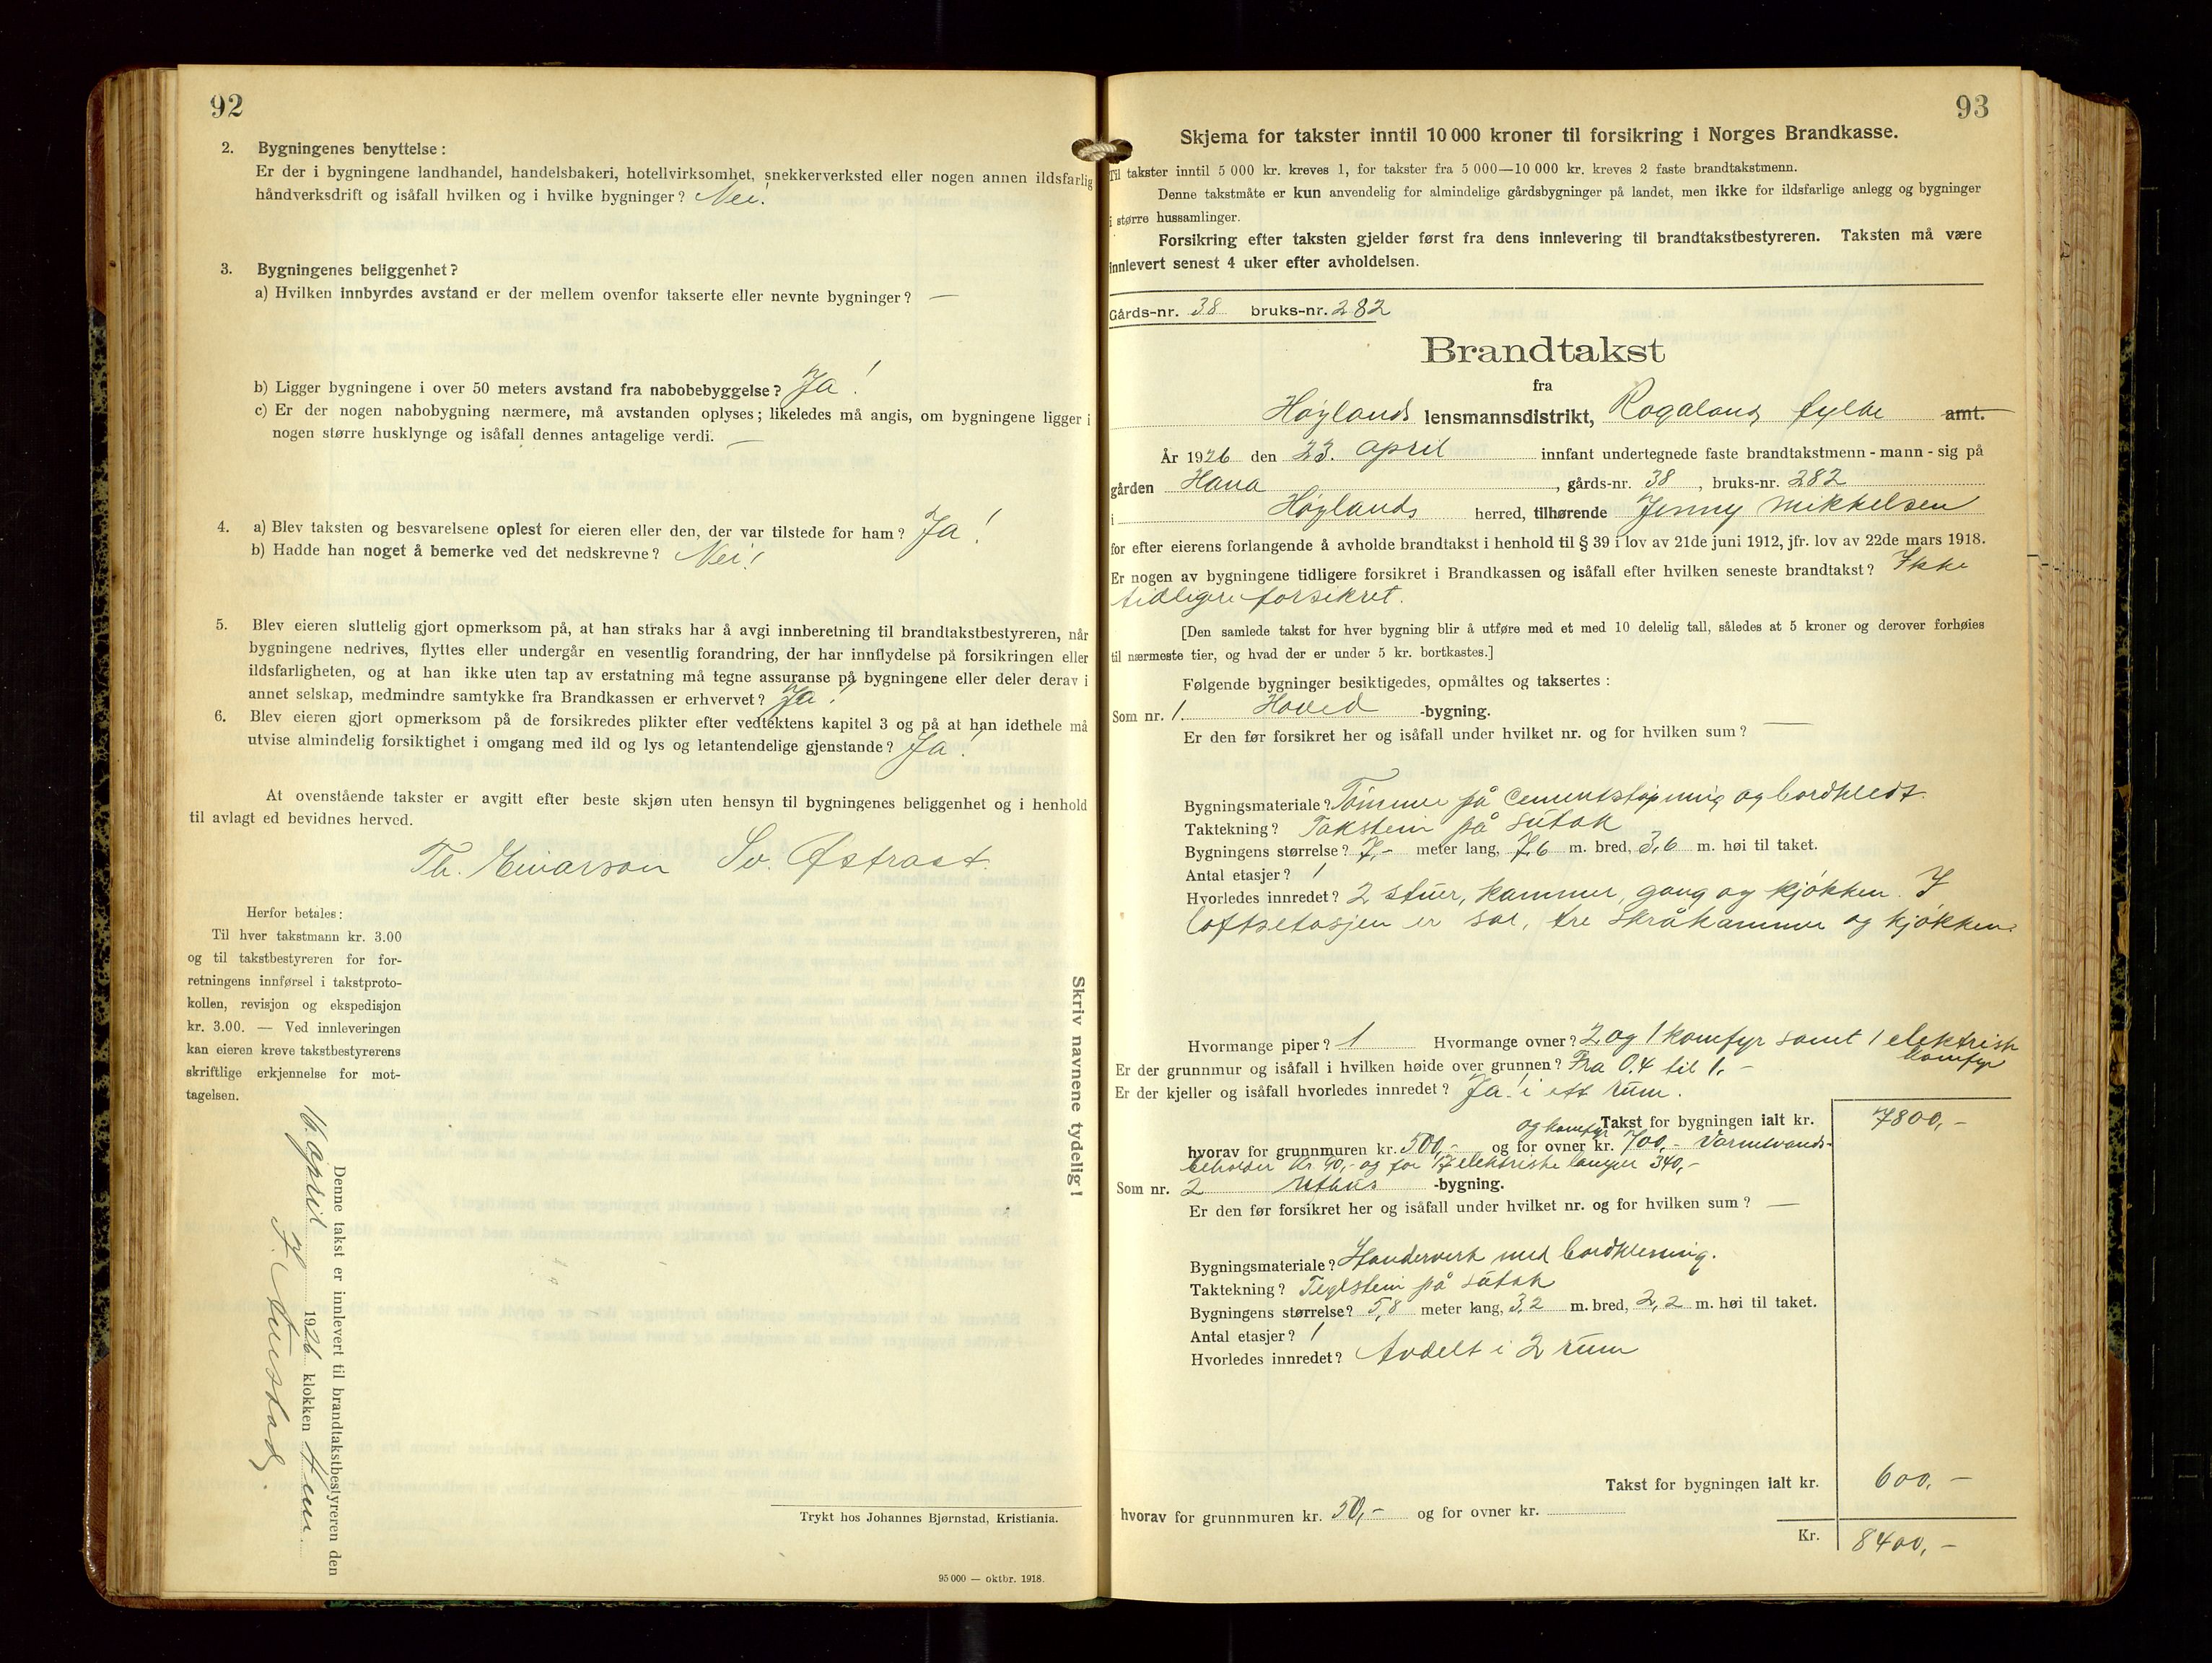 92
2. Bygningenes benyttelse :
Er der i bygningene landhandel, handelsbakeri, hotellvirksomhet, snekkerverksted eller nogen annen ildsfarlig
håndverksdrift og isåfall hvilken og i hvilke bygninger? Nei!
3. Bygningenes beliggenhet?
a) Hvilken innbyrdes avstand er der mellem ovenfor takserte eller nevnte bygninger? —
b) Ligger bygningene i over 50 meters avstand fra nabobebyggelse? Ja!
c) Er der nogen nabobygning nærmere, må avstanden oplyses; likeledes må angis, om bygningene ligger i
nogen større husklynge og isåfall dennes antagelige verdi. —
4. a) Blev taksten og besvarelsene oplest for eieren eller den, der var tilstede for ham? Ja!
b) Hadde han noget å bemerke ved det nedskrevne? Nei!
5. Blev eieren sluttelig gjort opmerksom på, at han straks har å avgi innberetning til brandtakstbestyreren, når
bygningene nedrives, flyttes eller undergår en vesentlig forandring, der har innflydelse på forsikringen eller
ildsfarligheten, og at han ikke uten tap av erstatning må tegne assuranse på bygningene eller deler derav i
annet selskap, medmindre samtykke fra Brandkassen er erhvervet? Ja!
6. Blev eieren gjort opmerksom på de forsikredes plikter efter vedtektens kapitel 3 og på at han idethele må
utvise almindelig forsiktighet i omgang med ild og lys og letantendelige gjenstande? Ja!
At ovenstående takster er avgitt efter beste skjøn uten hensyn til bygningenes beliggenhet og i henhold
til avlagt ed bevidnes herved.
Th. Eivarson Sv. Østraat.
Herfor betales:
Til hver takstmann kr. 3.00
og til takstbestyreren for for-
retningens innførsel i takstproto-
kollen, revisjon og ekspedisjon
kr. 3.00. — Ved innleveringen
kan eieren kreve takstbestyrerens
skriftlige erkjennelse for mot-
tagelsen.
Skriv navnene tydelig!
Denne takst er innlevert til brandtakstbestyreren den
april 1926 klokken
Trykt hos Johannes Bjørnstad, Kristiania.
95 000 — oktbr. 1918.
93
Skjema for takster inntil 10 000 kroner til forsikring i Norges Brandkasse.
Til takster inntil 5 000 kr. kreves 1, for takster fra 5 000—10 000 kr. kreves 2 faste brandtakstmenn.
Denne takstmåte er kun anvendelig for almindelige gårdsbygninger på landet, men ikke for ildsfarlige anlegg og bygninger
i større hussamlinger.
Forsikring efter taksten gjelder først fra dens innlevering til brandtakstbestyreren. Taksten må være
innlevert senest 4 uker efter avholdelsen.
Gårds-nr. 38 bruks-nr. 282
Brandtakst
fra
Høylands lensmannsdistrikt, Rogaland fylke amt.
År 1926 den 23. april innfant undertegnede faste brandtakstmenn - mann - sig på
gården Hana, gårds-nr. 38, bruks-nr. 282
i Høylands herred, tilhørende Jenny Mikkelsen
for efter eierens forlangende å avholde brandtakst i henhold til § 39 i lov av 21de juni 1912, jfr. lov av 22de mars 1918.
Er nogen av bygningene tidligere forsikret i Brandkassen og isåfall efter hvilken seneste brandtakst? Ikke
tidligere forsikret.
[Den samlede takst for hver bygning blir å utføre med et med 10 delelig tall, således at 5 kroner og derover forhøies
til nærmeste tier, og hvad der er under 5 kr. bortkastes.]
Følgende bygninger besiktigedes, opmåltes og taksertes :
Som nr. 1. Hoved -bygning.
Er den før forsikret her og isåfall under hvilket nr. og for hvilken sum? —
Bygningsmateriale? Tømmer på cementstøpning og bordkledt.
Taktekning? Takstein på sutak
Bygningens størrelse? 7,- meter lang, 7,6 m. bred, 3,6 m. høi til taket.
Antal etasjer? 1
Hvorledes innredet? 2 stuer, kammer, gang og kjøkken. I
loftsetasjen er sal, tre skråkammer og kjøkken.
Hvormange piper? 1 Hvormange ovner? 2 og 1 komfyr samt 1 elektrisk
komfyr
Er der grunnmur og isåfall i hvilken høide over grunnen? Fra 0.4 til 1,-
Er der kjeller og isåfall hvorledes innredet? Ja! i ett rum.
Takst for bygningen ialt kr. 7800,-
og komfyr
hvorav for grunnmuren kr. 500,- og for ovner kr. 700,- Varmtvands-
beholder kr. 90,- og for 17 elektriske lamper 340,-
Som nr. 2 Uthus -bygning.
Er den før forsikret her og isåfall under hvilket nr. og for hvilken sum? —
Bygningsmateriale? med bordklening.
Taktekning? Teglstein på sutak
Bygningens størrelse? 5,8 meter lang, 3,2 m. bred, 2,2 m. høi til taket.
Antal etasjer? 1
Hvorledes innredet? Avdelt i 2 rum
Takst for bygningen ialt kr. 600,-
hvorav for grunnmuren kr. 50,- og for ovner kr.
Kr. 8400,-